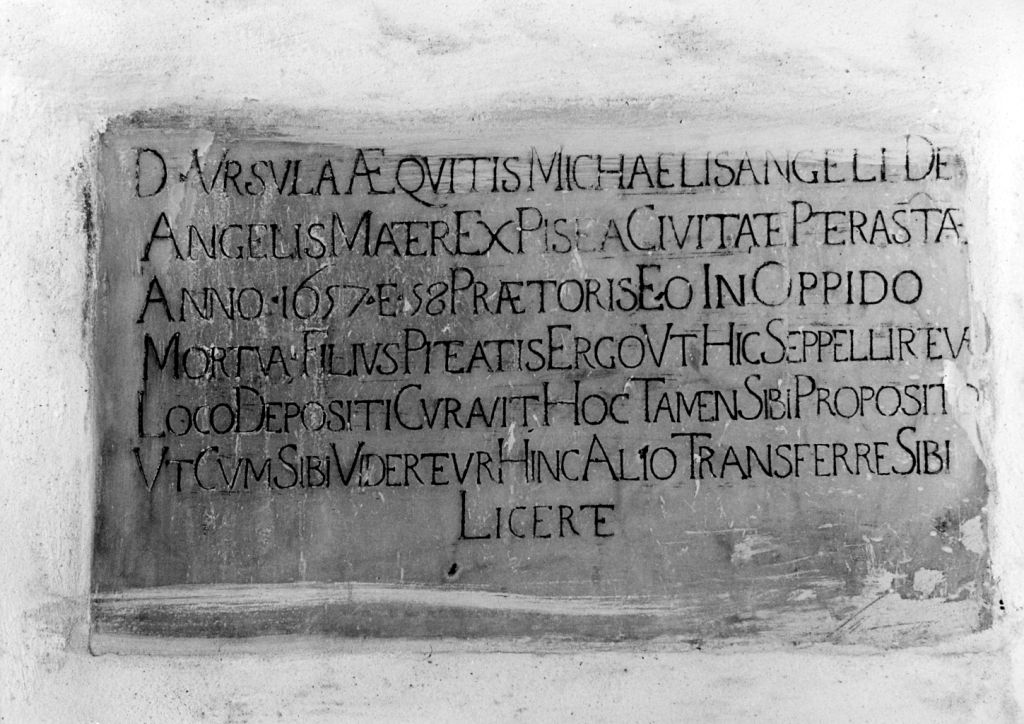 D · VRSVLA ÆQVITIS MICHAELISANGELI DE
ANGELIS MATER EX PISEA CIVITATE PTERASTA.
ANNO · 1657 · E · 58 PRÆTORIS EO IN OPPIDO
MORTVA, FILIVS PITEATIS ERGO VT HIC SEPPELLIRTEVR
LOCO DEPOSITI CVRAVIT, HOC TAMEN SIBI PROPOSITO
VT CVM SIBI VIDERTEVR HINC ALIO TRANSFERRE SIBI
LICERTE